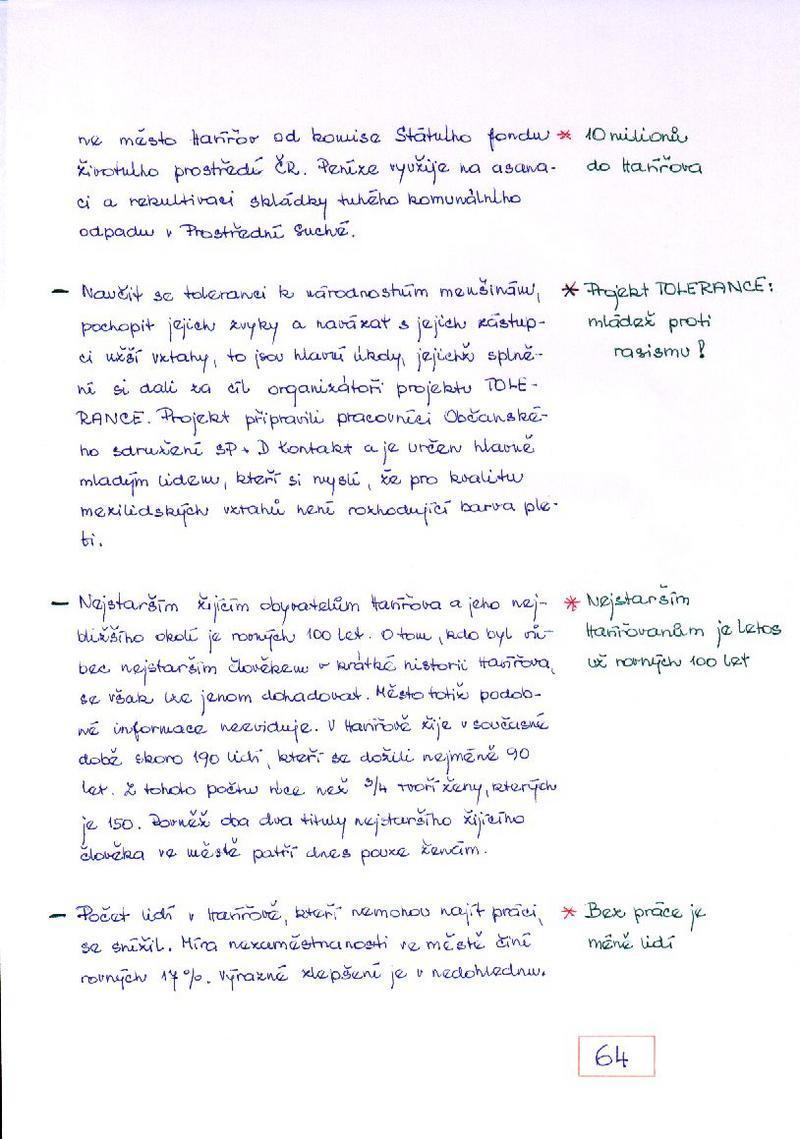 ne město Havířov od komise Státního fondu
životního prostředí ČR. Peníze využije na asana-
ci a rekultivaci skládky tuhého komunálního
odpadu v Prostřední Suché.
* 10 milionů
do Havířova
- Naučit se toleranci k národnostním menšinám,
pochopit jejich zvyky a navázat s jejich zástup-
ci užší vztahy, to jsou hlavní úkoly, jejichž splně-
ní si dali za cíl organizátoři projektu TOLE-
RANCE. Projekt připravili pracovníci Občanské-
ho sdružení SP + D Kontakt a je určen hlavně
mladým lidem, kteří si myslí, že pro kvalitu
mezilidských vztahů není rozhodující barva ple-
ti.
* Projekt TOLERANCE:
mládež proti
rasismu!
- Nejstarším žijícím obyvatelům Havířova a jeho nej-
bližšího okolí je rovných 100 let. O tom, kdo byl vů-
bec nejstarším člověkem v krátké historii Havířova,
se však lze jenom dohadovat. Město totiž podob-
né informace neeviduje. V Havířově žije v současné
době skoro 190 lidí, kteří se dožili nejméně 90
let. Z tohoto počtu více než 3/4 tvoří ženy, kterých
je 150. Rovněž oba dva tituly nejstaršího žijícího
člověka ve městě patří dnes pouze ženám.
* Nejstarším
Havířovanům je letos
už rovných 100 let
- Počet lidí v Havířově, kteří nemohou najít práci,
se snížil. Míra nezaměstnanosti ve městě činí
rovných 17 %. Výrazné zlepšení je v nedohlednu.
* Bez práce je
méně lidí
64